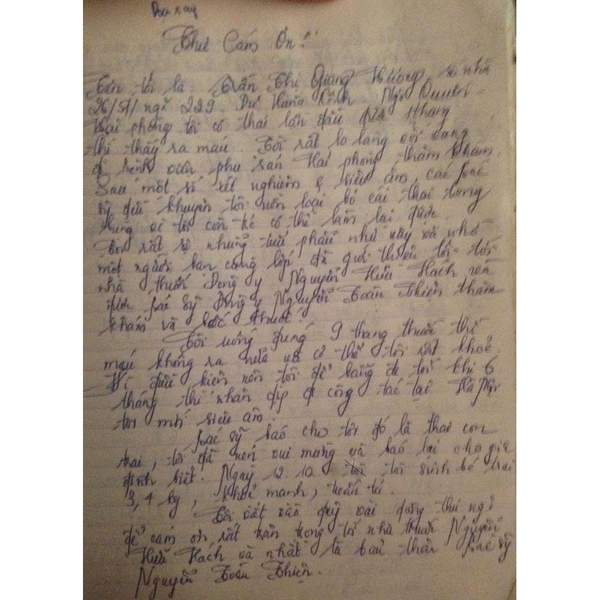 Thư Cám Ơn!
Tên tôi là Trần Thị Giang Hương số nhà
26/57/ngõ 229 Dư Hàng Kênh Ngô Quyền
Hải phòng tôi có thai lần đầu được tháng
thì thấy ra máu. Tôi rất lo lắng vội vàng
đi bệnh viện phụ sản Hải phòng thăm khám.
Sau một số xét nghiệm & siêu âm, các bác
sỹ đều khuyên tôi nên loại bỏ cái thai trong
bụng vì tôi còn trẻ có thể làm lại được.
Tôi rất sợ những thủ phẫu như vậy và nhờ
một người bạn cùng lớp đã giới thiệu tôi tới
nhà thuốc Đông y Nguyễn Hữu Hách và
được bác sỹ Đông y Nguyễn Toàn Thiện thăm
khám và bốc thuốc.
Tôi uống đúng 9 thang thuốc thì
máu không ra nữa và cơ thể tôi rất khoẻ.
điều kiện nên tôi để bẵng đi tới khi 6
tháng thì nhân dịp đi công tác tại Hà Nội
tôi mới siêu âm.
Bác sỹ báo cho tôi đó là thai con
trai, tôi đã vui mừng và báo lại cho gia
đình biết. Ngày 12.10 tôi sinh bé trai
3,4 kg, khoẻ mạnh, tuấn tú.
Tôi viết vào quỹ vài dòng
để cám ơn rất trân trọng tới nhà thuốc Nguyễn
Hữu Hách và nhất là bản thân bác sỹ
Nguyễn Toàn Thiện.